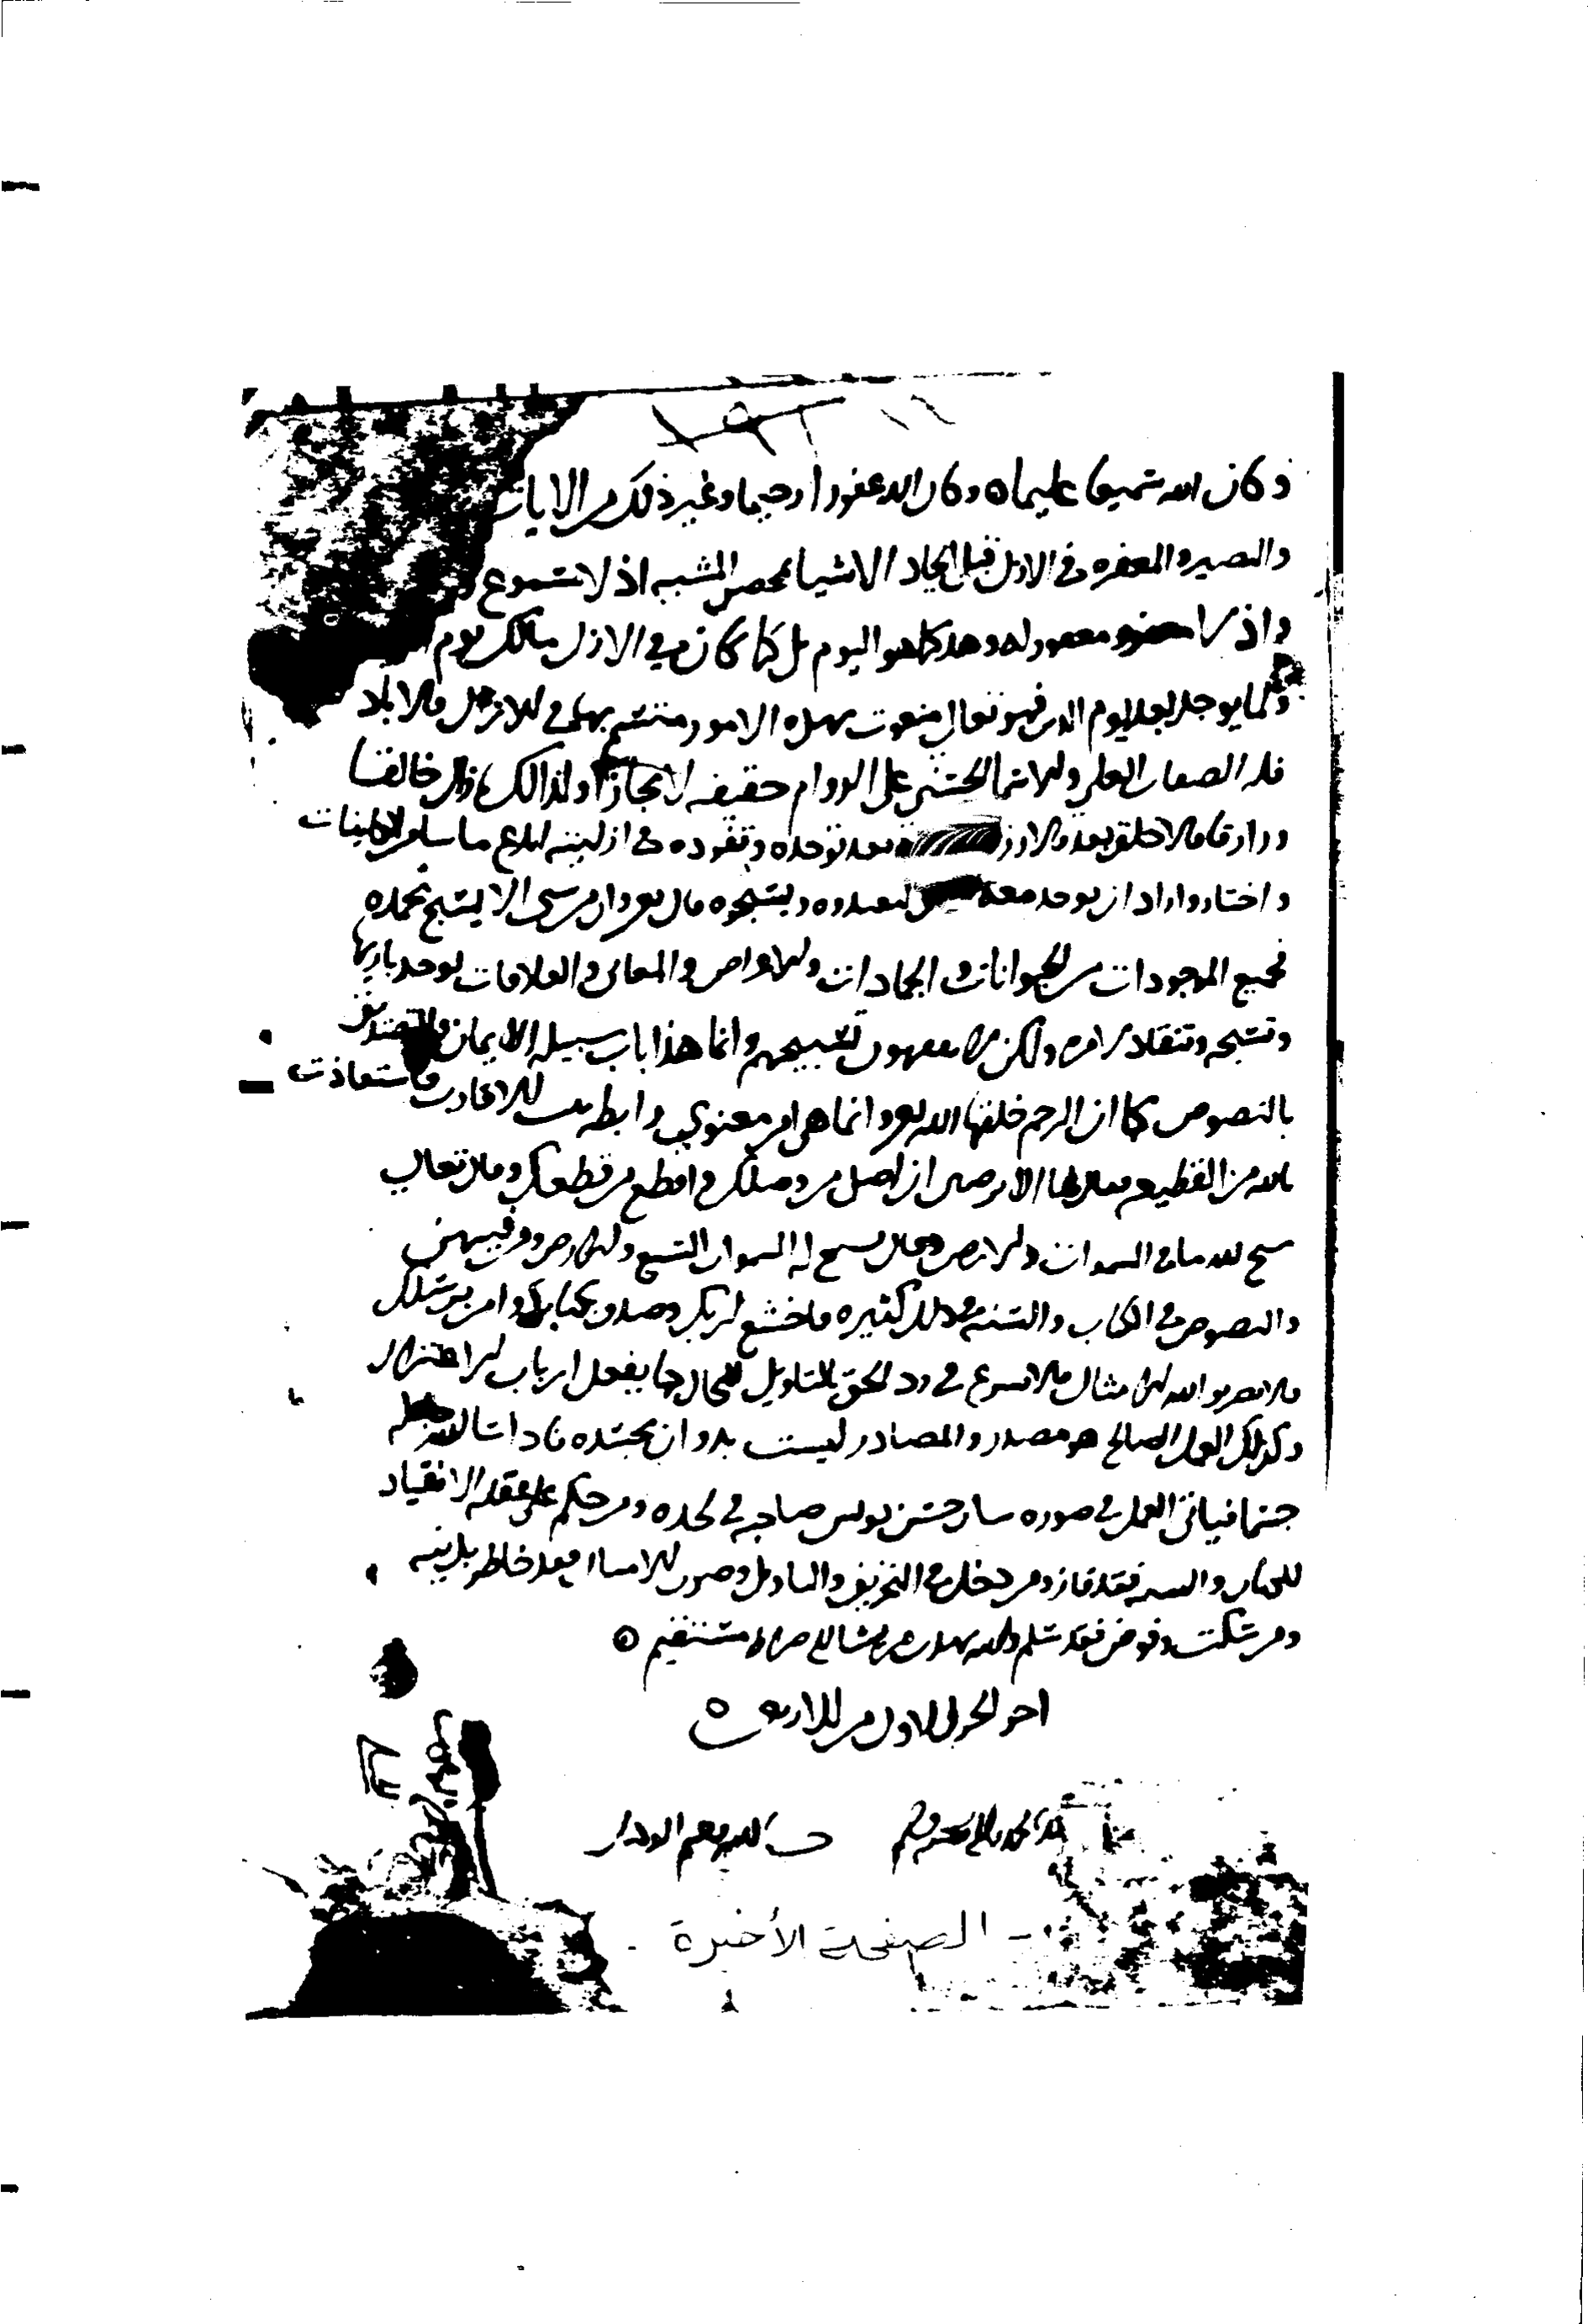 وكان الله سميعا عليما ه وكان الله غفورا رحيما وغير ذلك من الايات
والبصير والمغفره في الازل قبل ايجاد الاشيا بمحض المشيه اذ لا مسموع
واذ لا معفور له وهذا كما هو اليوم بل كما كان في الازل مالك يوم
وكما يوجد بعد ليوم الدين فهو تعالى منعوت بهذه الامور متسم بها في الازل والاباد
فله الصفات العلى والاسما الحسنى على الدوام حقيقه لا مجازا ولذالك كان خالقا
ورازقا ولا خلق بعد ولا رزق بعد توحده وتفرده في ازليته ابدع ما شا من الكاينات
واختار واراد ان يوحد معه ليعبدوه ويسبحوه قال تعالى وان من شي الا يسبح بحمده
فجميع الموجودات من الحيوانات والجمادات والاعراض والمعاني والعلامات توحد باريها
وتسبحه وتنقاد لامره ولكن لا تفقهون تسبيحهم وانما هذا باب سبيله الايمان والتصديق
بالنصوص كما ان الرحم خلقها الله تعالى وانما هي امر معنوي رابطه بين الاقارب فاستعاذت
بالله من القطيعه فقال لها الا ترضين ان اصل من وصلك واقطع من قطعك وقال تعالى
سبح لله ما في السموات والارض وقال تسبح له السموات السبع والارض ومن فيهن
والنصوص في الكتاب والسنه في ذلك كثيره فاخشع لربك وصدق بكتابه وامن برسلك
فلا تضربوا لله الامثال ولا تسرع في رد الحق بالتاويل المحال كما يفعل ارباب الاعتزال
وكذلك العمل الصالح هو مصدر والمصادر ليست بدوات مجسده فاذا شا الله جعله
جسما فياتي العمل في صوره شاب حسن يونس صاحبه في لحده ومن حكم على عقله الانقياد
للكتاب والسنه فقد فاز ومن دخل في التحريف والتاويل وضرب الامثال فقد خاطر بدينه
ومن سكت وفوض فقد سلم والله يهدي من يشا الى صراط مستقيم ه
اخر الجزء الاول من الاربعين ه
الصفحة الأخيرة -